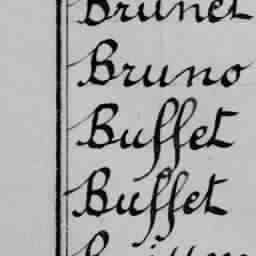 Brunet
Bruno
Buffet
Buffet